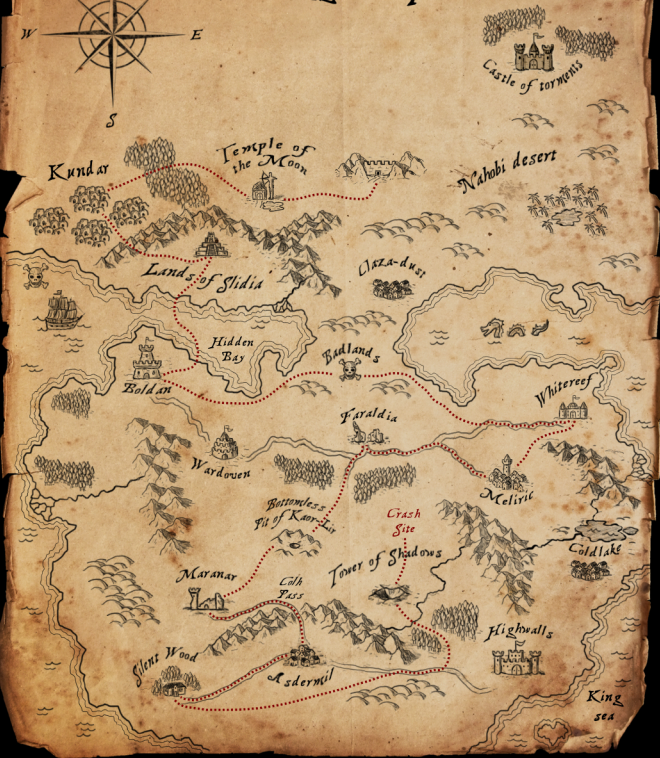 W
E
S
Castle of torments
Kundar
Temple of
the Moon
Nahobi desert
Lands of Slidia
Claza-dust
Hidden
Bay
Badlands
Boldan
Whitereef
Faraldia
Wardoven
Meliric
Bottomless
Pit of Kaor-Lir
Crash
Site
Coldlake
Tower of Shadows
Maranar
Colh
Pass
Highwalls
Silent Wood
Asdermil
King
sea